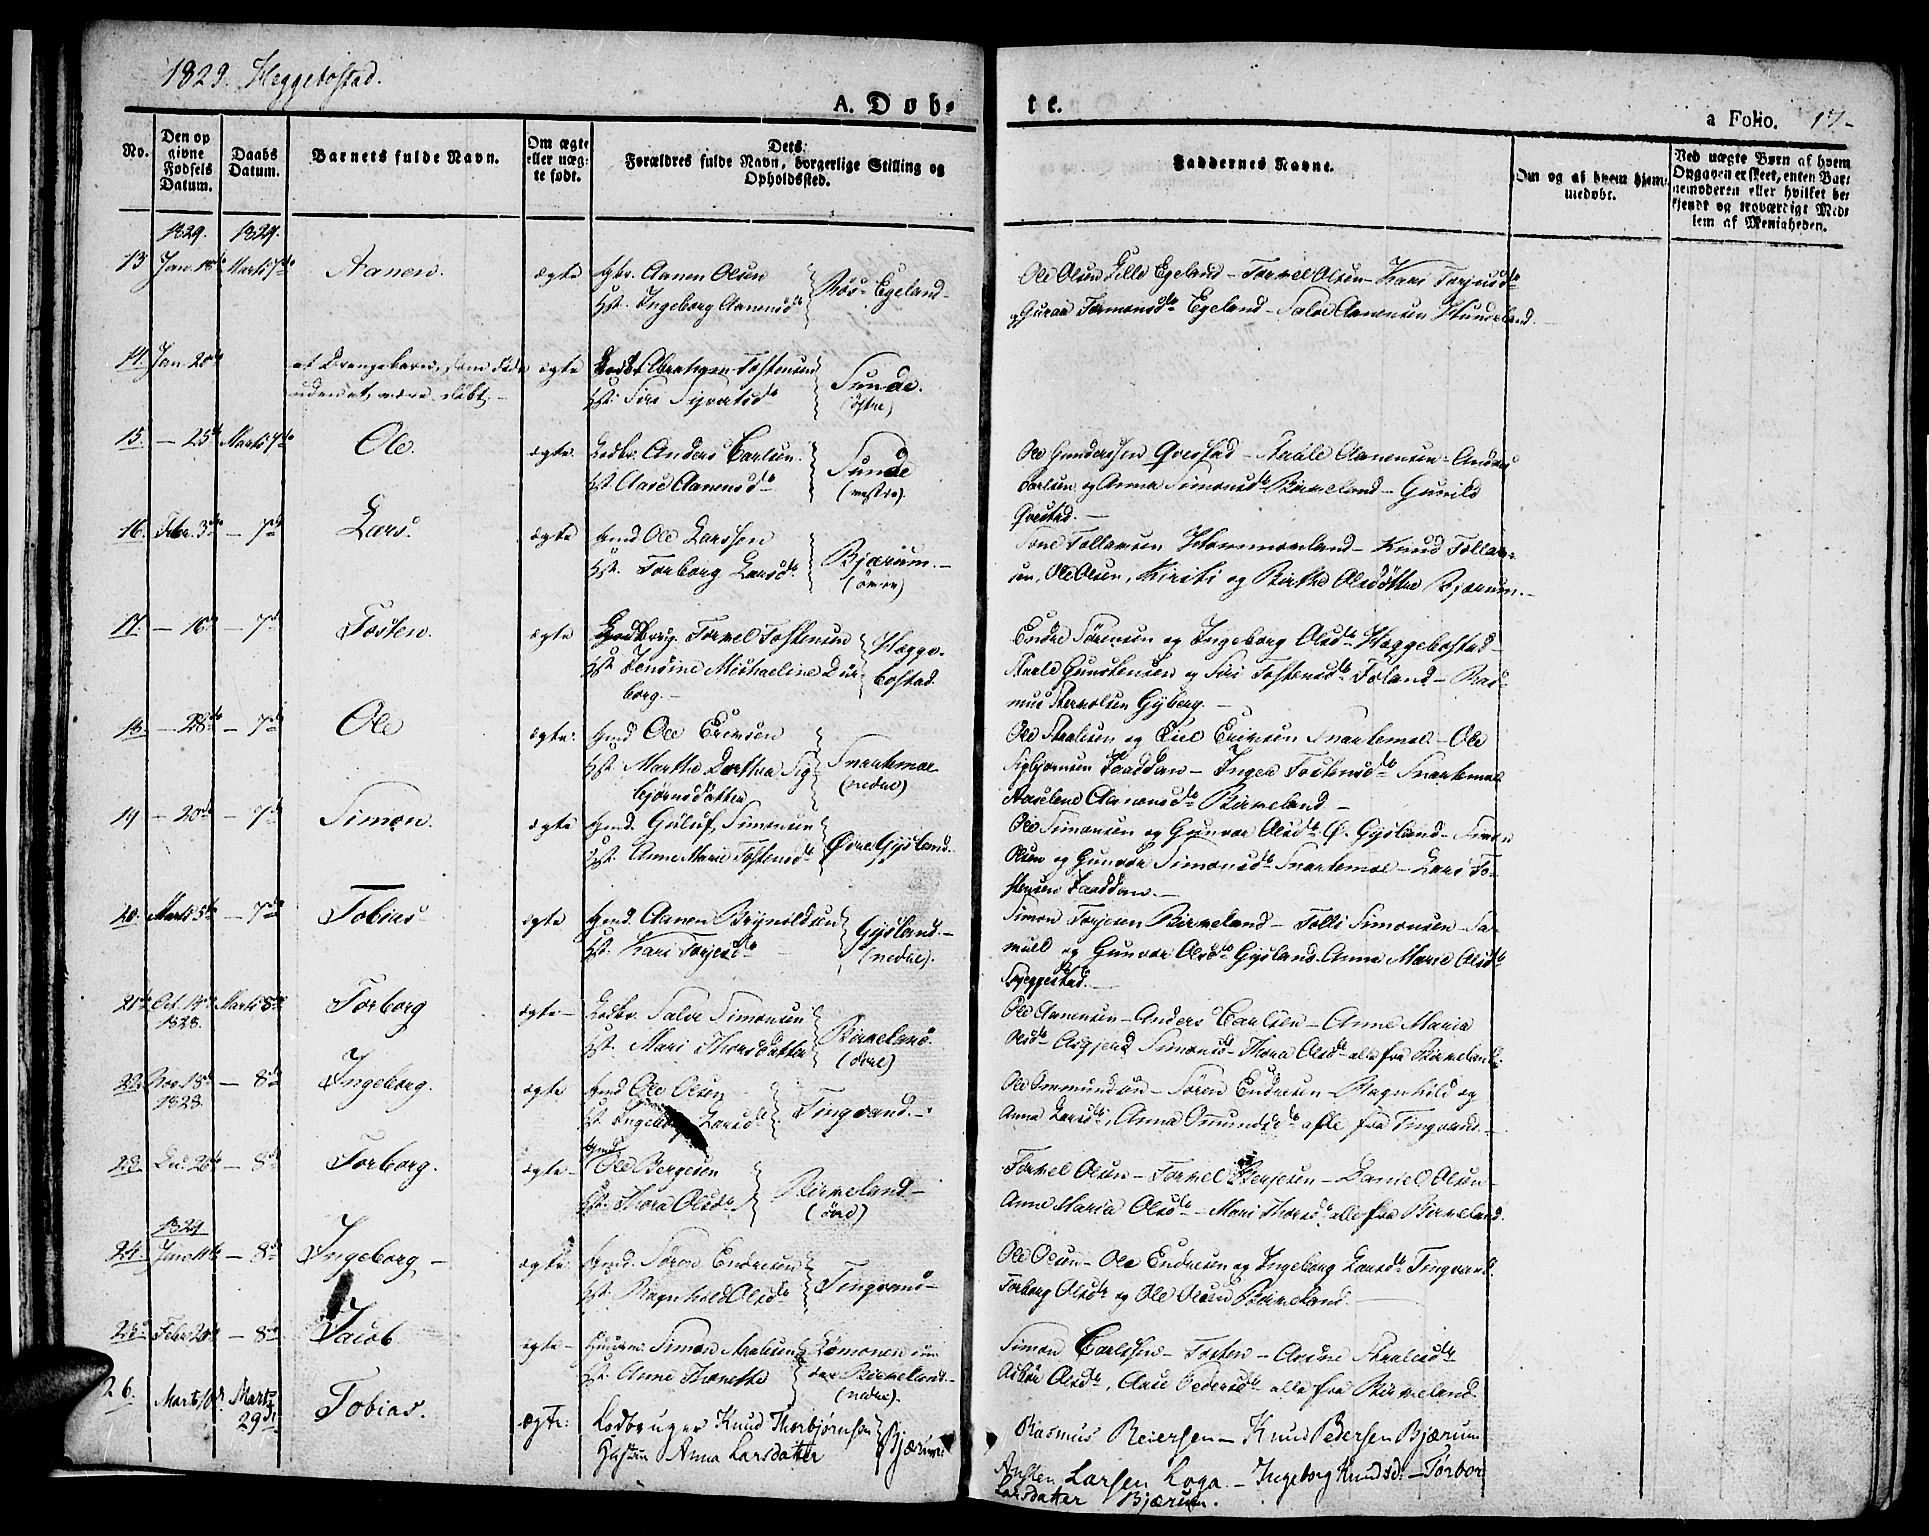 1829. Heggebostad.
A. Döb-
te.
a Folio. 17-
No.
Den op
givne
Fødsels
Datum.
Daabs
Datum.
Barnets fulde Navn.
Om ægte
eller uæg-
te født.
Dets
Forældres fulde Navn, borgerlige Stilling og
Opholdssted.
Faddernes Navne.
Om og af hvem hjem-
medøbt.
Ved uægte Børn af hvem
Opgaven er skeet, enten Bar-
nemoderen eller hvilket be-
kjendt og troværdigt Med-
lem af Menigheden.
1829. 1829.
13 Jan. Marts 7de Aanen. ægte Aanen Olsen
Hst. Ingeborg Aanensdr Egeland-
Ole Olsen Lille Egeland - Torkel Olsen - Kari Torjusdr
Guroe Tormonsdr Egeland - Salve Aanensen Hundeland.
14. Jan. 20de et Drengebarn, som døde
uden at være døbt. ægte Abraham Tostensen
Hst. Siri Sivertsdr Sunde.
(østre)
15. - 25de Marts 7de Ole. ægte. Anders Carlsen.
Hst. Aase Aanensdr Sunde
(vestre)
Ole Gunderssen Qvestad - Aanensen - Anders
Carlsen og Anna Simonsdr Birkeland - Gunild
Qvestad.-
16. Febr. 3die - 7de Lars. ægte Gmd Ole Larssen
Hst. Torborg Larsdr. Bjærum.-
(övre)
Tone Tollavsen Hommerland - Knud Tollav-
sen, Ole Olsen, Kirsti og Birthe Olsdöttre Bjærum.-
17. - 16de - 7de Tosten. ægte Torkel Tostensen
Hst Jensine Michaeline Dür-
borg.- Hegge-
bostad.
Endre Sörensen og Ingeborg Olsdr Heggebostad -
Gunstensen og Siri Tostensdr Foland - Ras-
mus Gyberg.-
18. - 28de - 7de Ole ægte. Gmd Ole Eriksen
Hst. Marthe Dorthea Sig-
bjørnsdatter Snartemoe
(nedre)
Ole Staalesen og Eriksen Snartemoe - Ole
Sigbjørnsen Faaddan - Inger Tostensdr Snartemoe
Aanensdr Birkeland -
19 - 20de - 7de Simon. ægte Gmd. Simonsen
Hst. Anne Marie Tostensdr Øvre Gysland.
Ole Simonsen og Gunvor Olsdr Ø. Gysland - Simon
Olsen og Gunvor Simonsdr Snartemoe - Lars To-
stensen Faaddan -
20. Marts 5te - 7de Tobias ægte Gmd. Aanen Brynildsen
Hst. Kari Torjesdr Gysland.-
(nedre).
Simon Torjesen Birkeland - Tolli Simonsen - Sa-
muel og Gunvor Olsdr Gysland. Anne Marie Olsdr
Skeggestad.-
21de Oct. 14de Marts 8de Torborg ægte- Salve Simonsen
1828. Hst. Mari Thorsdatter Birkeland.
(övre)
Ole Aanensen - Anders Carlsen - Anne Maria
Olsdr Asgjerd Simonsdr Thora Olsdr alle fra Birkeland.
22. Nov. 18de - 8de Ingeborg. ægte Gmd Ole Olsen
1828. Hst Ingeborg Larsdr Tingvand.-
Ole Ommundsen - Sören Endresen - Ragnhild og
Anna Larsdr, Anna Omundsdr alle fra Tingvand.-
23. Dec. 26de - 8de Torborg. ægte- Gmd. Ole Bergesen
Hst. Thora Olsdr Birkeland-
(övre)
Torkel Olsen - Torkel Bergesen - Daniel Olsen -
Anne Maria Olsdr - Mari Thorsdr alle fra Birkeland.
1829
24. Jan. - 8de Ingeborg - ægte. Gmd. Sören Endresen
Hst. Ragnhild Olsdr Tingvand-
Ole Olsen - Ole Endresen og Ingeborg Larsdr Tingvand.
Torborg Olsdr og Ole Olsen Birkeland.
25de Febr. 20de - 8de Jacob ægte- Huusm. Simon Staalesen
Hst. Anne Thonette Lömonen un-
der Birkeland-
(nedre).
Simon Carlssen - Tosten - Staalesdr
Olsdr, Aase Pedersdr alle fra Birkeland.
26. Marts 10de Marts
29de Tobias. ægte. Lodbruger Knud Thorbjörnsen
Hustru Anna Larsdatter Bjærum.
Rasmus Reiersen - Knud Pedersen Bjærum
Austen Larsen Loga - Ingeborg Knudsd: - Torbor
Larsdatter Bjærum.